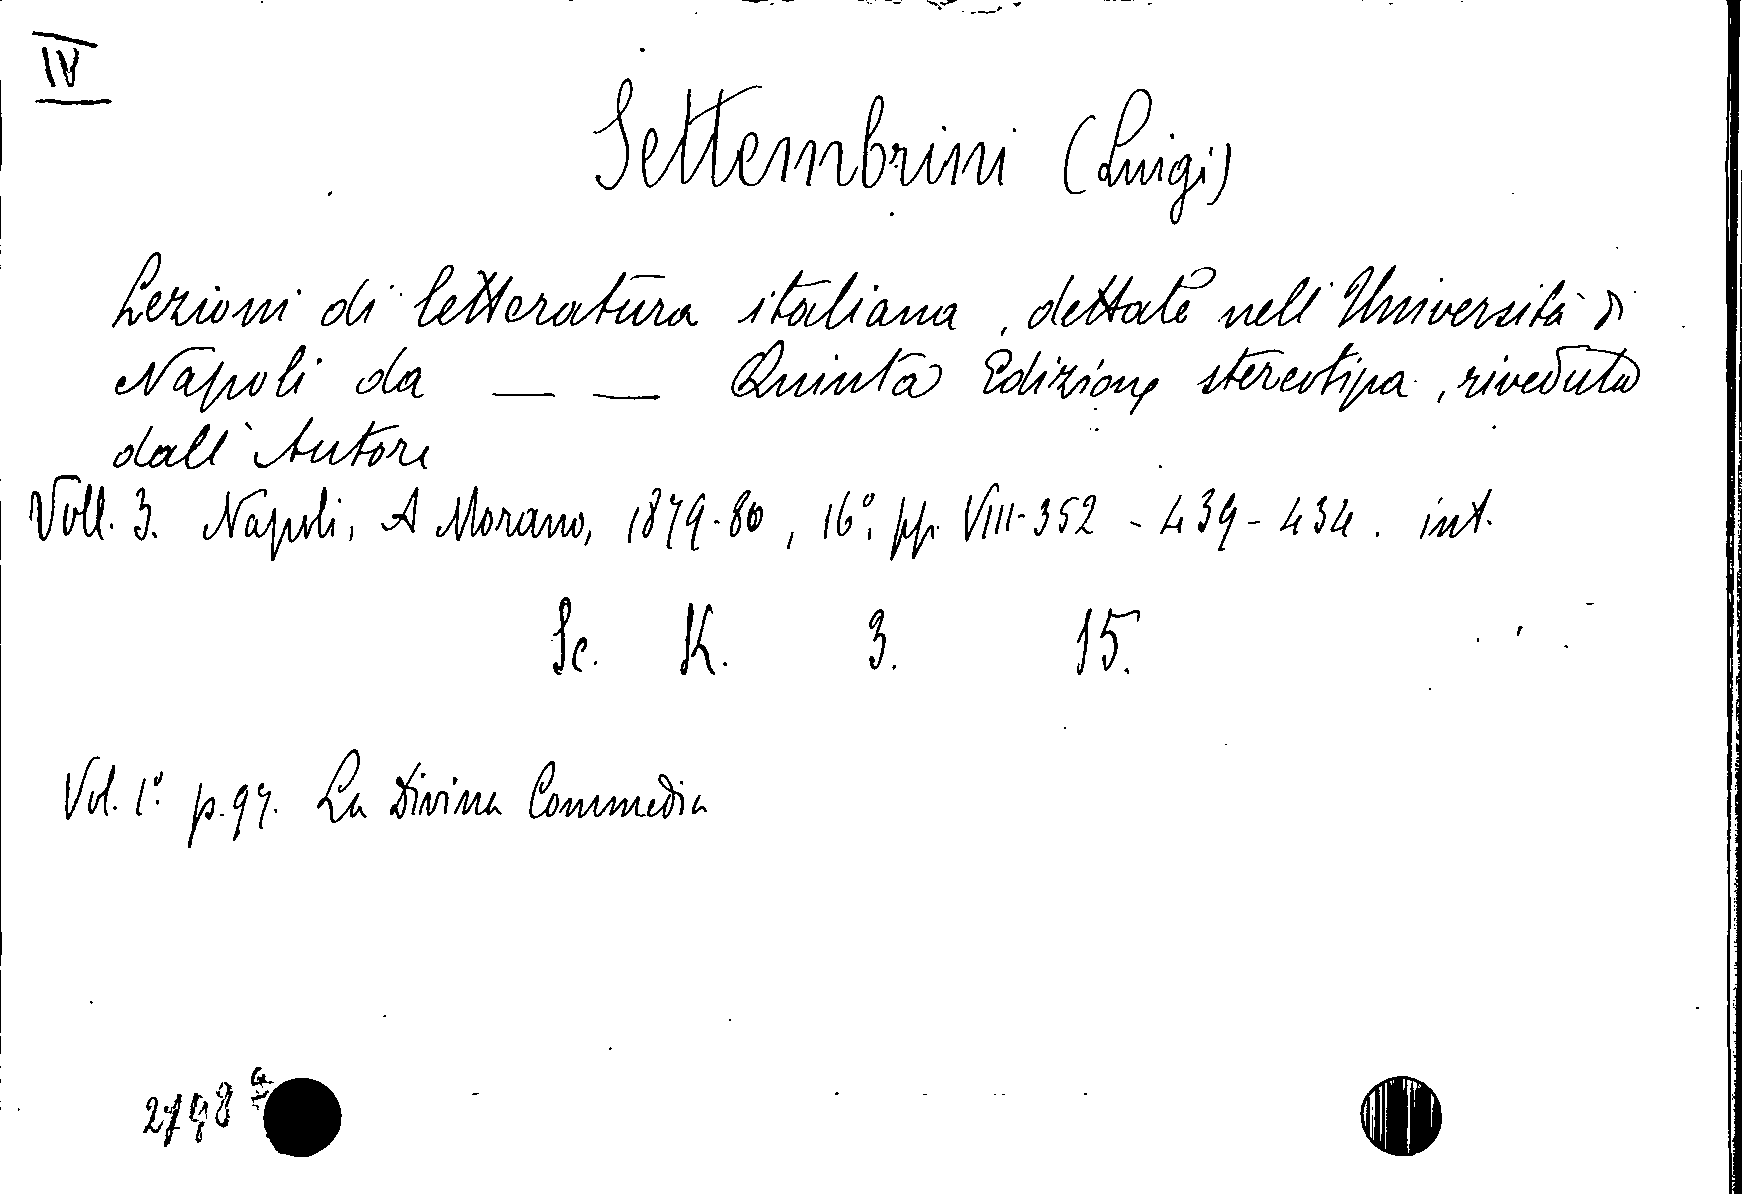 IV
Settembrini (Luigi)
Lezioni di letteratura italiana, dettate nell'Università di
Napoli da — — Quinta Edizione stereotipa, riveduta
dall'Autore
Voll. 3. Napoli, A Morano, 1879-80, 16°. pp. VIII-352 - 439 - 434. int.
Sc. K. 3. 15.
Vol. 1°. p. 97. La Divina Commedia
2798